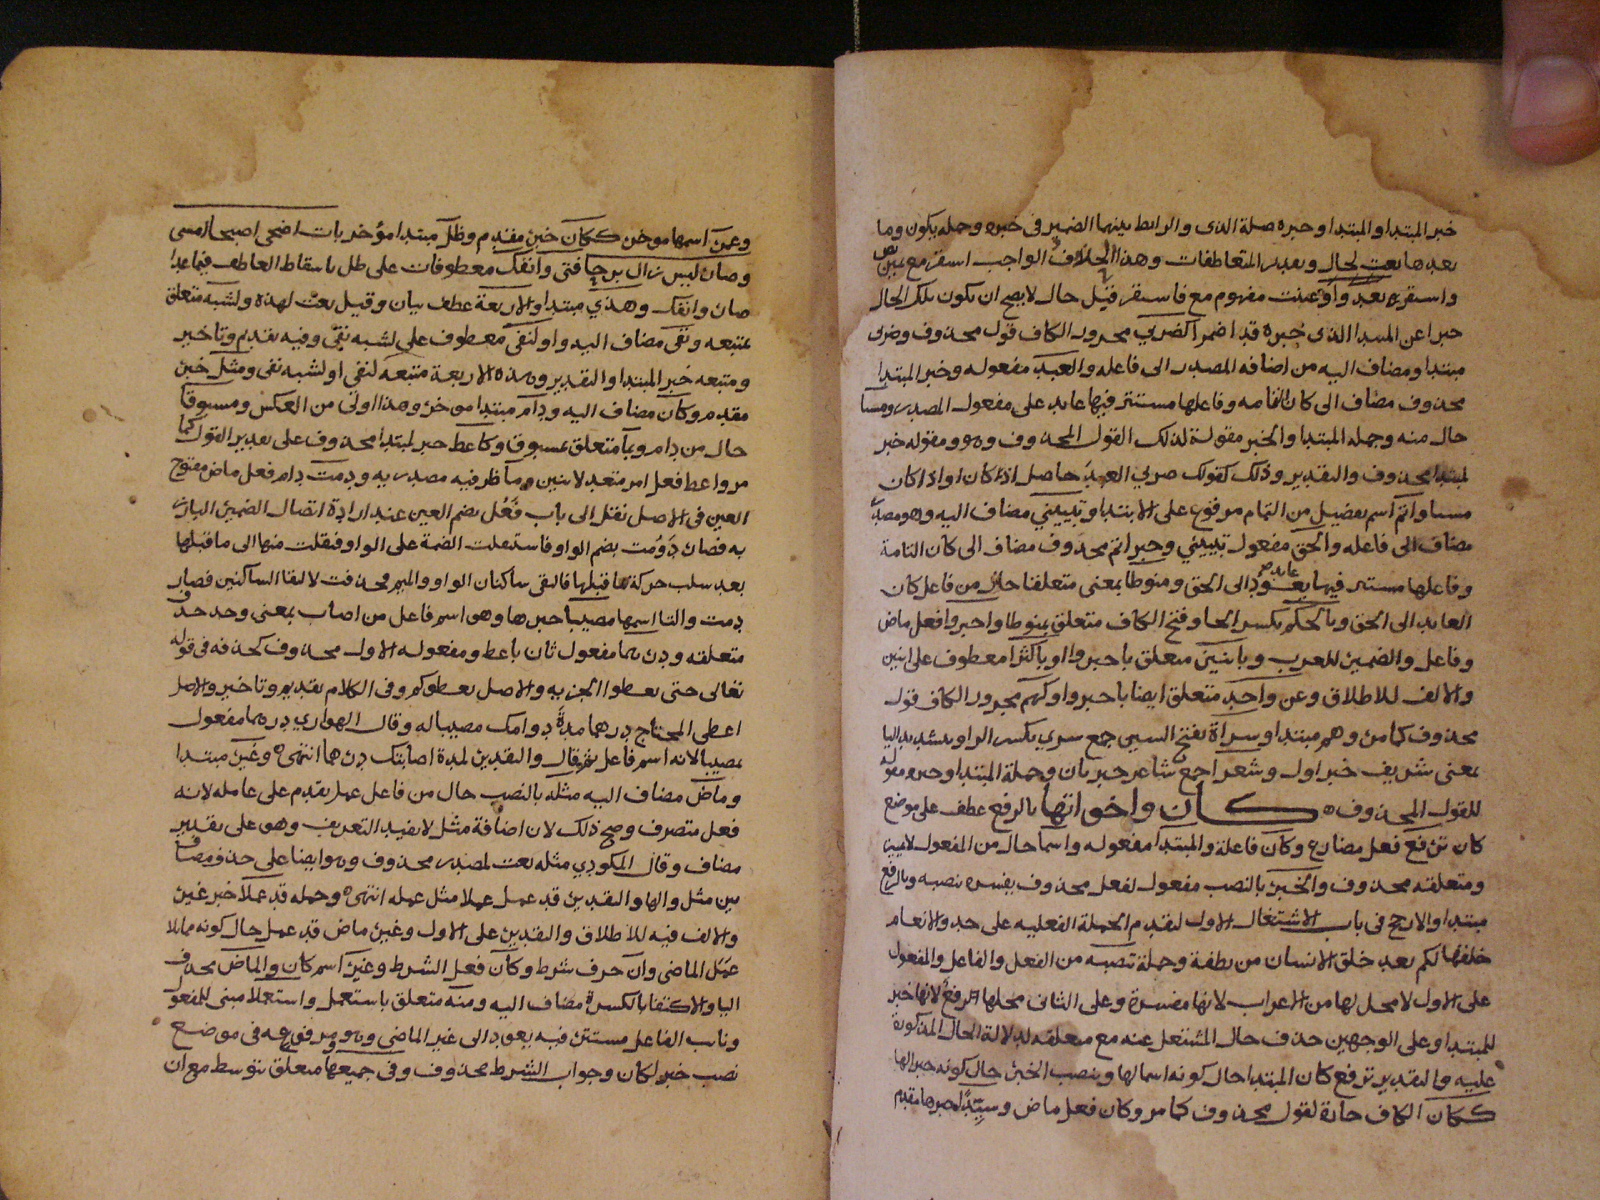 خبر المبتدا والمبتدا وخبره صلة الذى والرابط بينهما الضمير فى خبره وجمله يكون وما
بعدها نعت لحال وتقدير المتعاطفات وهذا الخلاف الواجب استقر مع
واستقر بعد وأو عينت مفهوم مع فاستقر قيل حال لا يصح ان تكون تلك الحال
خبرا عن المبتدا الذى خبره قد اضمرا كضربي مجرور الكاف قول محذوف وضربى
مبتدا ومضاف اليه من اضافه المصدر الى فاعله والعبد مفعوله وخبر المبتدا
محذوف مضاف الى كان التامه وفاعلها مستتر فيها عايد على مفعول المصدر ومسيا
حال منه وجمله المبتدا والخبر مقولة لذلك القول المحذوف وهو ومقوله خبر
لمبتدا محذوف والتقدير وذلك كقولك ضربي العبد حاصل اذا كان او اذ كان
مسيا واتم اسم تفضيل من التمام مرفوع على الابتدا وتبييني مضاف اليه وهو مصدر
مضاف الى فاعله والحق مفعول تبييني وخبر اتم محذوف مضاف الى كان التامة
وفاعلها مستتر فيها يعود الى الحق ومنوطا بمعنى متعلقا حال من فاعل كان
العايد الى الحق وبالحكم بكسر الحا وفتح الكاف متعلق بمنوطا واخبروا فعل ماض
وفاعل والضمير للعرب وباثنين متعلق باخبروا او باكثرا معطوف على اثنين
والالف للاطلاق وعن واحد متعلق ايضا باخبروا وكهم مجرور الكاف قول
محذوف كما مر وهم مبتدا وسراة بفتح السين جمع سري بكسر الرا وتشديد اليا
بمعنى شريف خبر اول وشعرا جمع شاعر خبر ثان وجملة المبتدا وخبره مقولة
للقول المحذوف ه كان واخواتها بالرفع عطف على موضع
كان ترفع فعل مضارع وكان فاعله والمبتدا مفعوله واسما حال من المفعول لا تمييز
ومتعلقه محذوف والخبر بالنصب مفعول لفعل محذوف يفسره تنصبه وبالرفع
مبتدا والارجح فى باب الاشتغال الاول لتقدم الجملة الفعليه على حد والانعام
خلقها لكم بعد خلق الانسان من نطفة وجملة تنصبه من الفعل والفاعل والمفعول
على الاول لا محل لها من الاعراب لانها مفسرة وعلى الثانى محلها الرفع لانها خبر
للمبتدا وعلى الوجهين حذف حال المشتغل عنه مع متعلقه لدلالة الحال المذكورة
عليه والتقدير ترفع كان المبتدا حال كونه اسما لها وتنصب الخبر حال كونه خبرا لها
ككان الكاف جارة لقول محذوف كما مر وكان فعل ماض وسيدا خبرها مقدم
وعمر اسمها موخر ككان خبر مقدم وظل مبتدا مؤخر بات اضحى اصبحا امسى
وصار ليس زال برحا فتى وانفك معطوفات على ظل باسقاط العاطف فيما عدا
صار وانفك وهذي مبتدا والاربعة عطف بيان وقيل نعت لهذه ولشبه متعلق
بمتبعه ونفى مضاف اليه واو لنفى معطوف على لشبه نفى وفيه تقديم وتاخير
ومتبعه خبر المبتدا والتقدير وهذه الاربعة متبعه لنفى او لشبه نفى ومثل خبر
مقدم وكان مضاف اليه ودام مبتدا موخر وهذا اولى من العكس ومسبوقا
حال من دام وبما متعلق بمسبوقا وكاعط خبر لمبتدا محذوف على تقدير القول كما
مر واعط فعل امر متعد لاثنين وما ظرفيه مصدريه ودمت دام فعل ماض مفتوح
العين فى الاصل نقل الى باب فعُل بضم العين عند ارادة اتصال الضمير البارز
به فصار دَوُمت بضم الواو فاستثقلت الضمة على الواو فنقلت منها الى ما قبلها
بعد سلب حركة ما قبلها فالتقى ساكنان الواو والميم فحذفت لالتقا الساكنين فصار
دمت والتا اسمها مصيبا خبرها وهى اسم فاعل من اصاب بمعنى وجد حذف
متعلقه ودرهما مفعول ثان باعط ومفعوله الاول محذوف كحذفه فى قوله
تعالى حتى يعطوا الجزيه والاصل يعطوكم وفى الكلام تقديم وتاخير والاصل
اعطى المحتاج درهما مدة دوامك مصيبا له وقال الهواري درهما مفعول
بمصيبا لانه اسم فاعل ثم قال والتقدير لمدة اصابتك درهما انتهى وغير مبتدا
وماض مضاف اليه مثله بالنصب حال من فاعل عمل تقدم على عامله لانه
فعل متصرف وصح ذلك لان اضافة مثل لا تفيد التعريف وهى على تقدير
مضاف وقال المكودي مثله نعت لمصدر محذوف وهو ايضا على حذف مضاف
بين مثل والها والتقدير قد عمل عملا مثل عمله انتهى وجمله قد عملا خبر غير
والالف فيه للاطلاق والتقدير على الاول وغير ماض قد عمل حال كونه مماثلا
عمل الماضى وان حرف شرط وكان فعل الشرط وغير اسم كان والماض محذف
اليا والاكتفا بالكسرة مضاف اليه ومنه متعلق باستعمل واستعملا مبنى للمفعول
ونايب الفاعل مستتر فيه يعود الى غير الماضى وهو ومرفوعه فى موضع
نصب خبر لكان وجواب الشرط محذوف وفى جميعها متعلق بتوسط مع ان